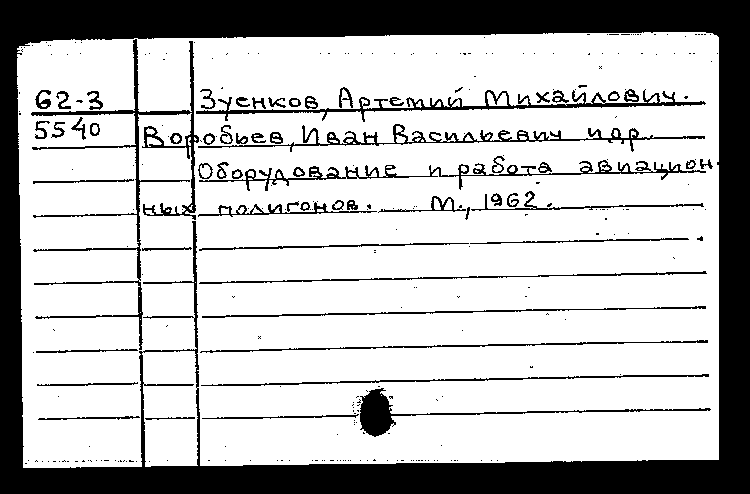 62-3 Зуенков, Артемий Михайлович.
5540 Воробьев, Иван Васильевич и др.
Оборудование и работа авиацион-
ных полигонов. М., 1962.